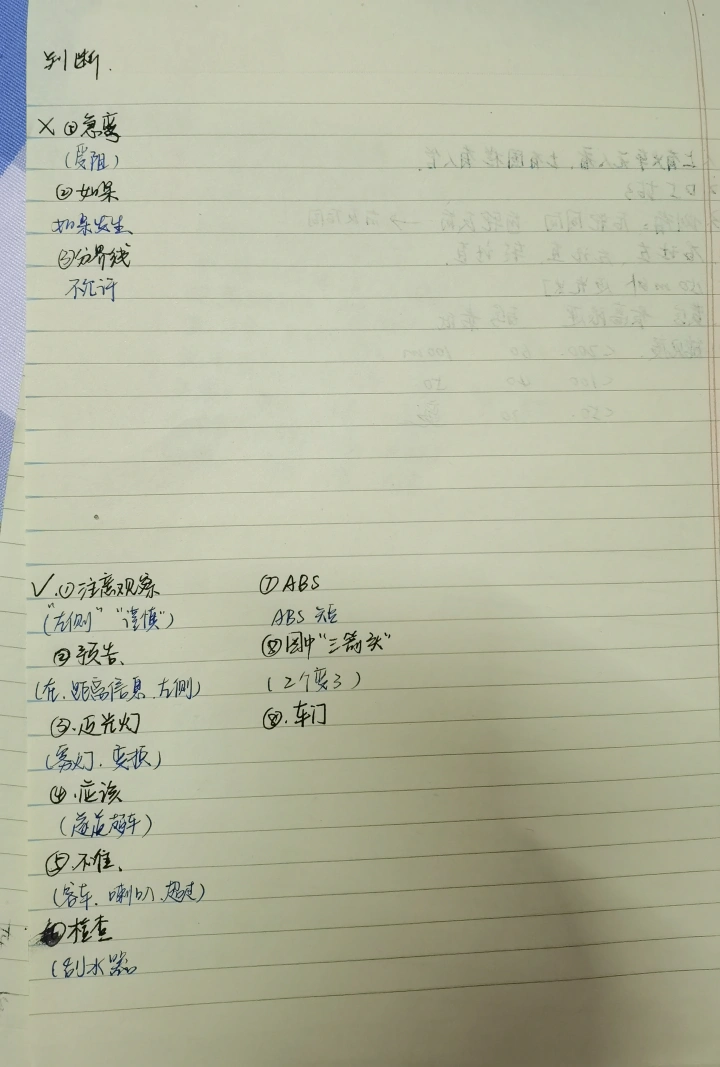 判断.
× ①急弯
(受阻)
②如果
如果发生
③分界线
不允许
✓.①注意观察
("左侧" "谨慎")
②预告、
(在.距离信息.左侧)
③.近光灯
(雾灯.变换)
④.应该
车)
⑤.不准、
(客车.喇叭.超速)
检查
(刮水器
⑦ABS
ABS
⑧图中"三箭头"
(2个变3)
⑧.车门